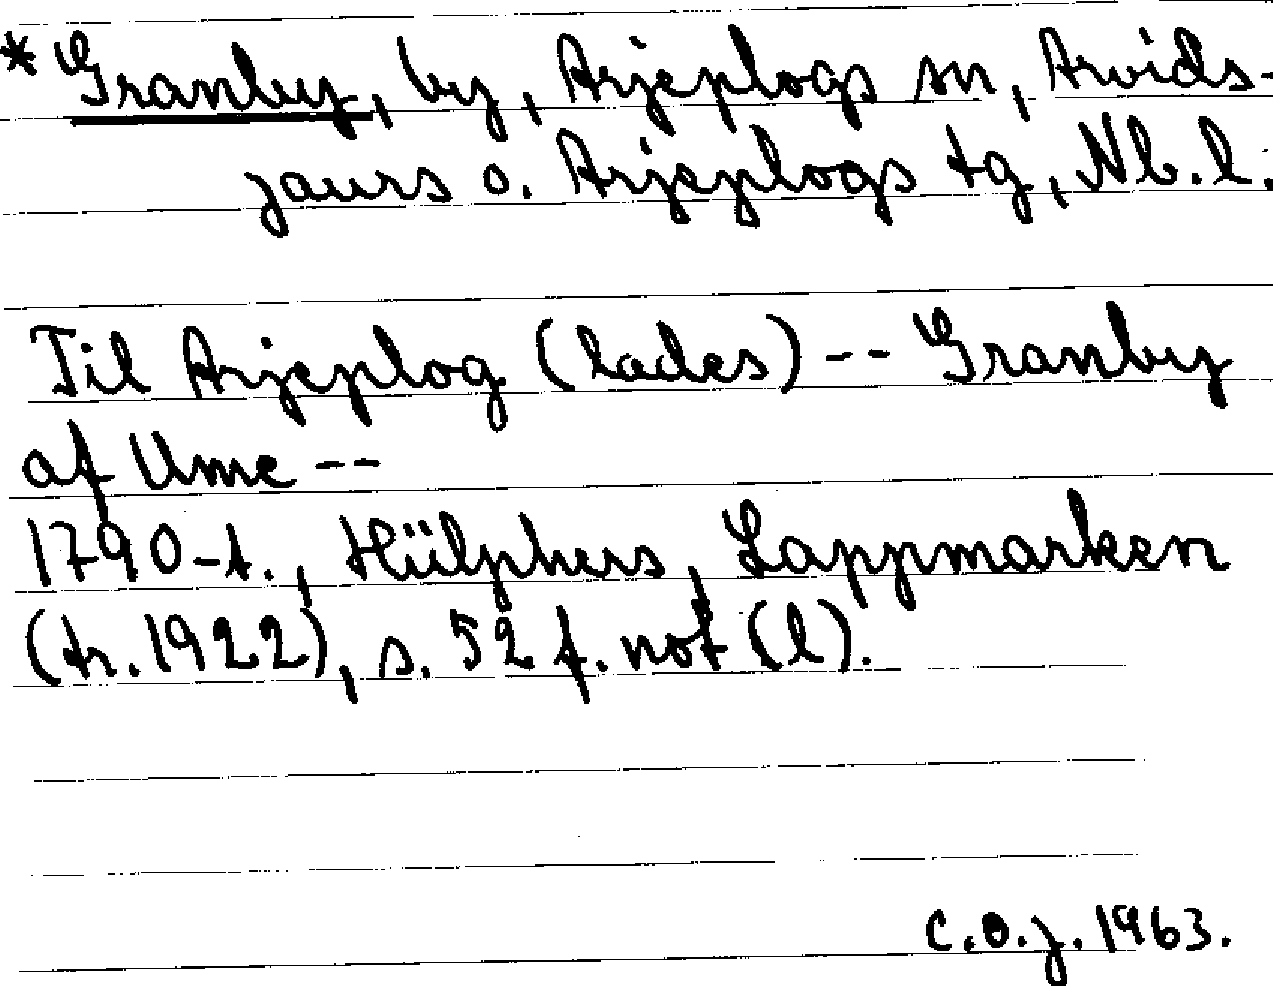 * Granby, by, Arjeplogs sn, Arvids-
jaurs o. Arjeplogs tg, Nb. l.
Til Arjeplog (lades) -- Granby
af Ume --
1790-t., Hülphers, Lappmarken
(tr. 1922), s. 52 f. not (l).
C.O.J. 1963.